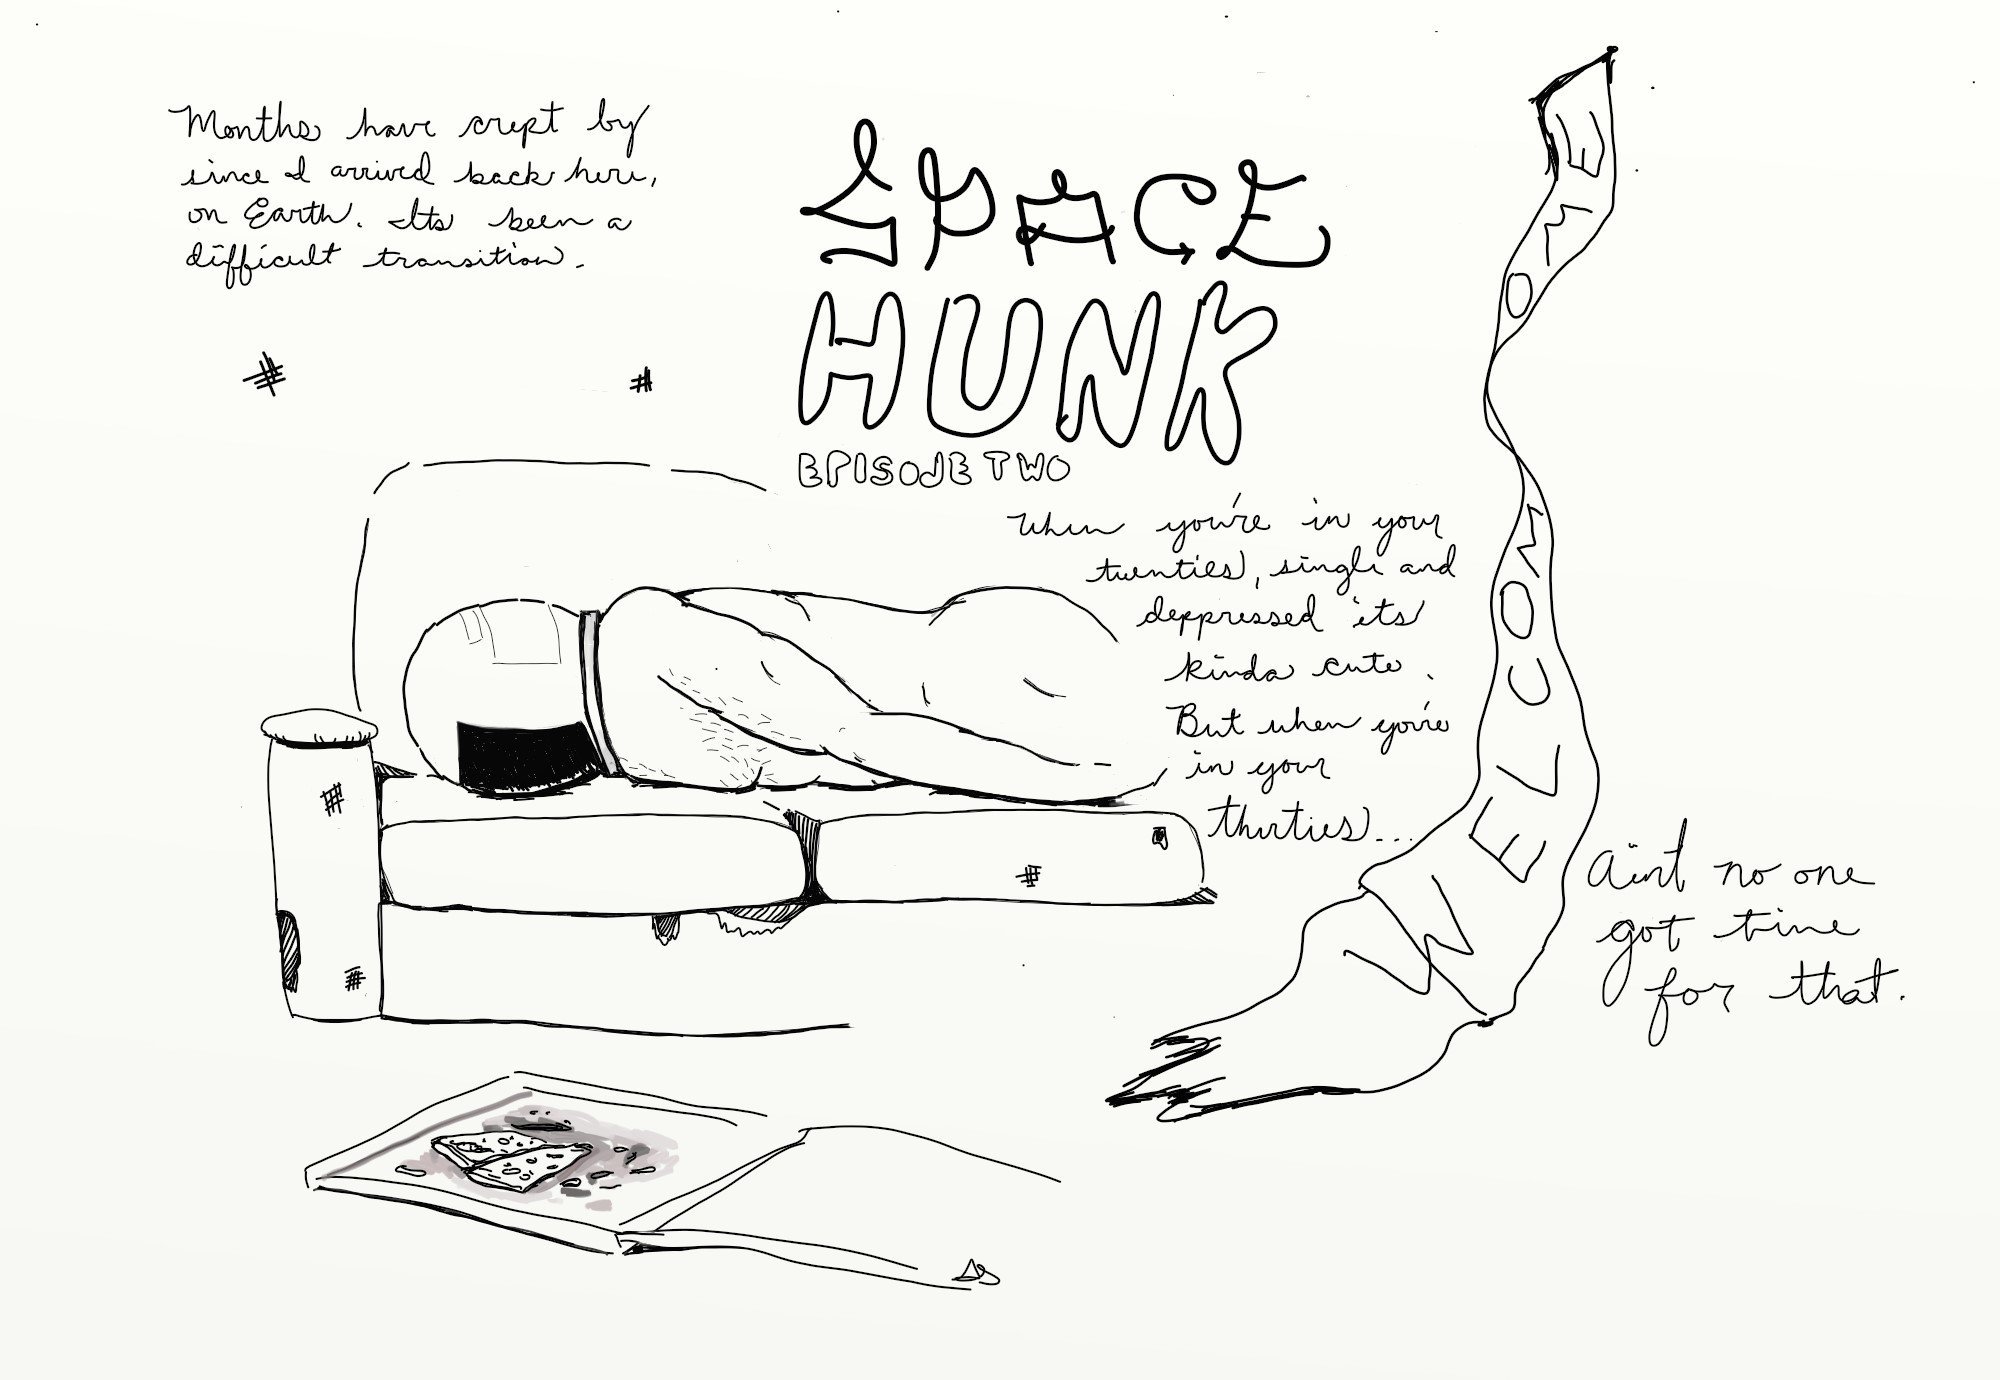 Months have crept by
since I arrived back here,
on Earth. Its been a
difficult transition.
SPACE
HUNK
EPISODE TWO
When you're in your
twenties, single and
depressed its
kinda cute.
But when you're
in your
thirties...
Aint no one
got time
for that.
WELCOME
HOME